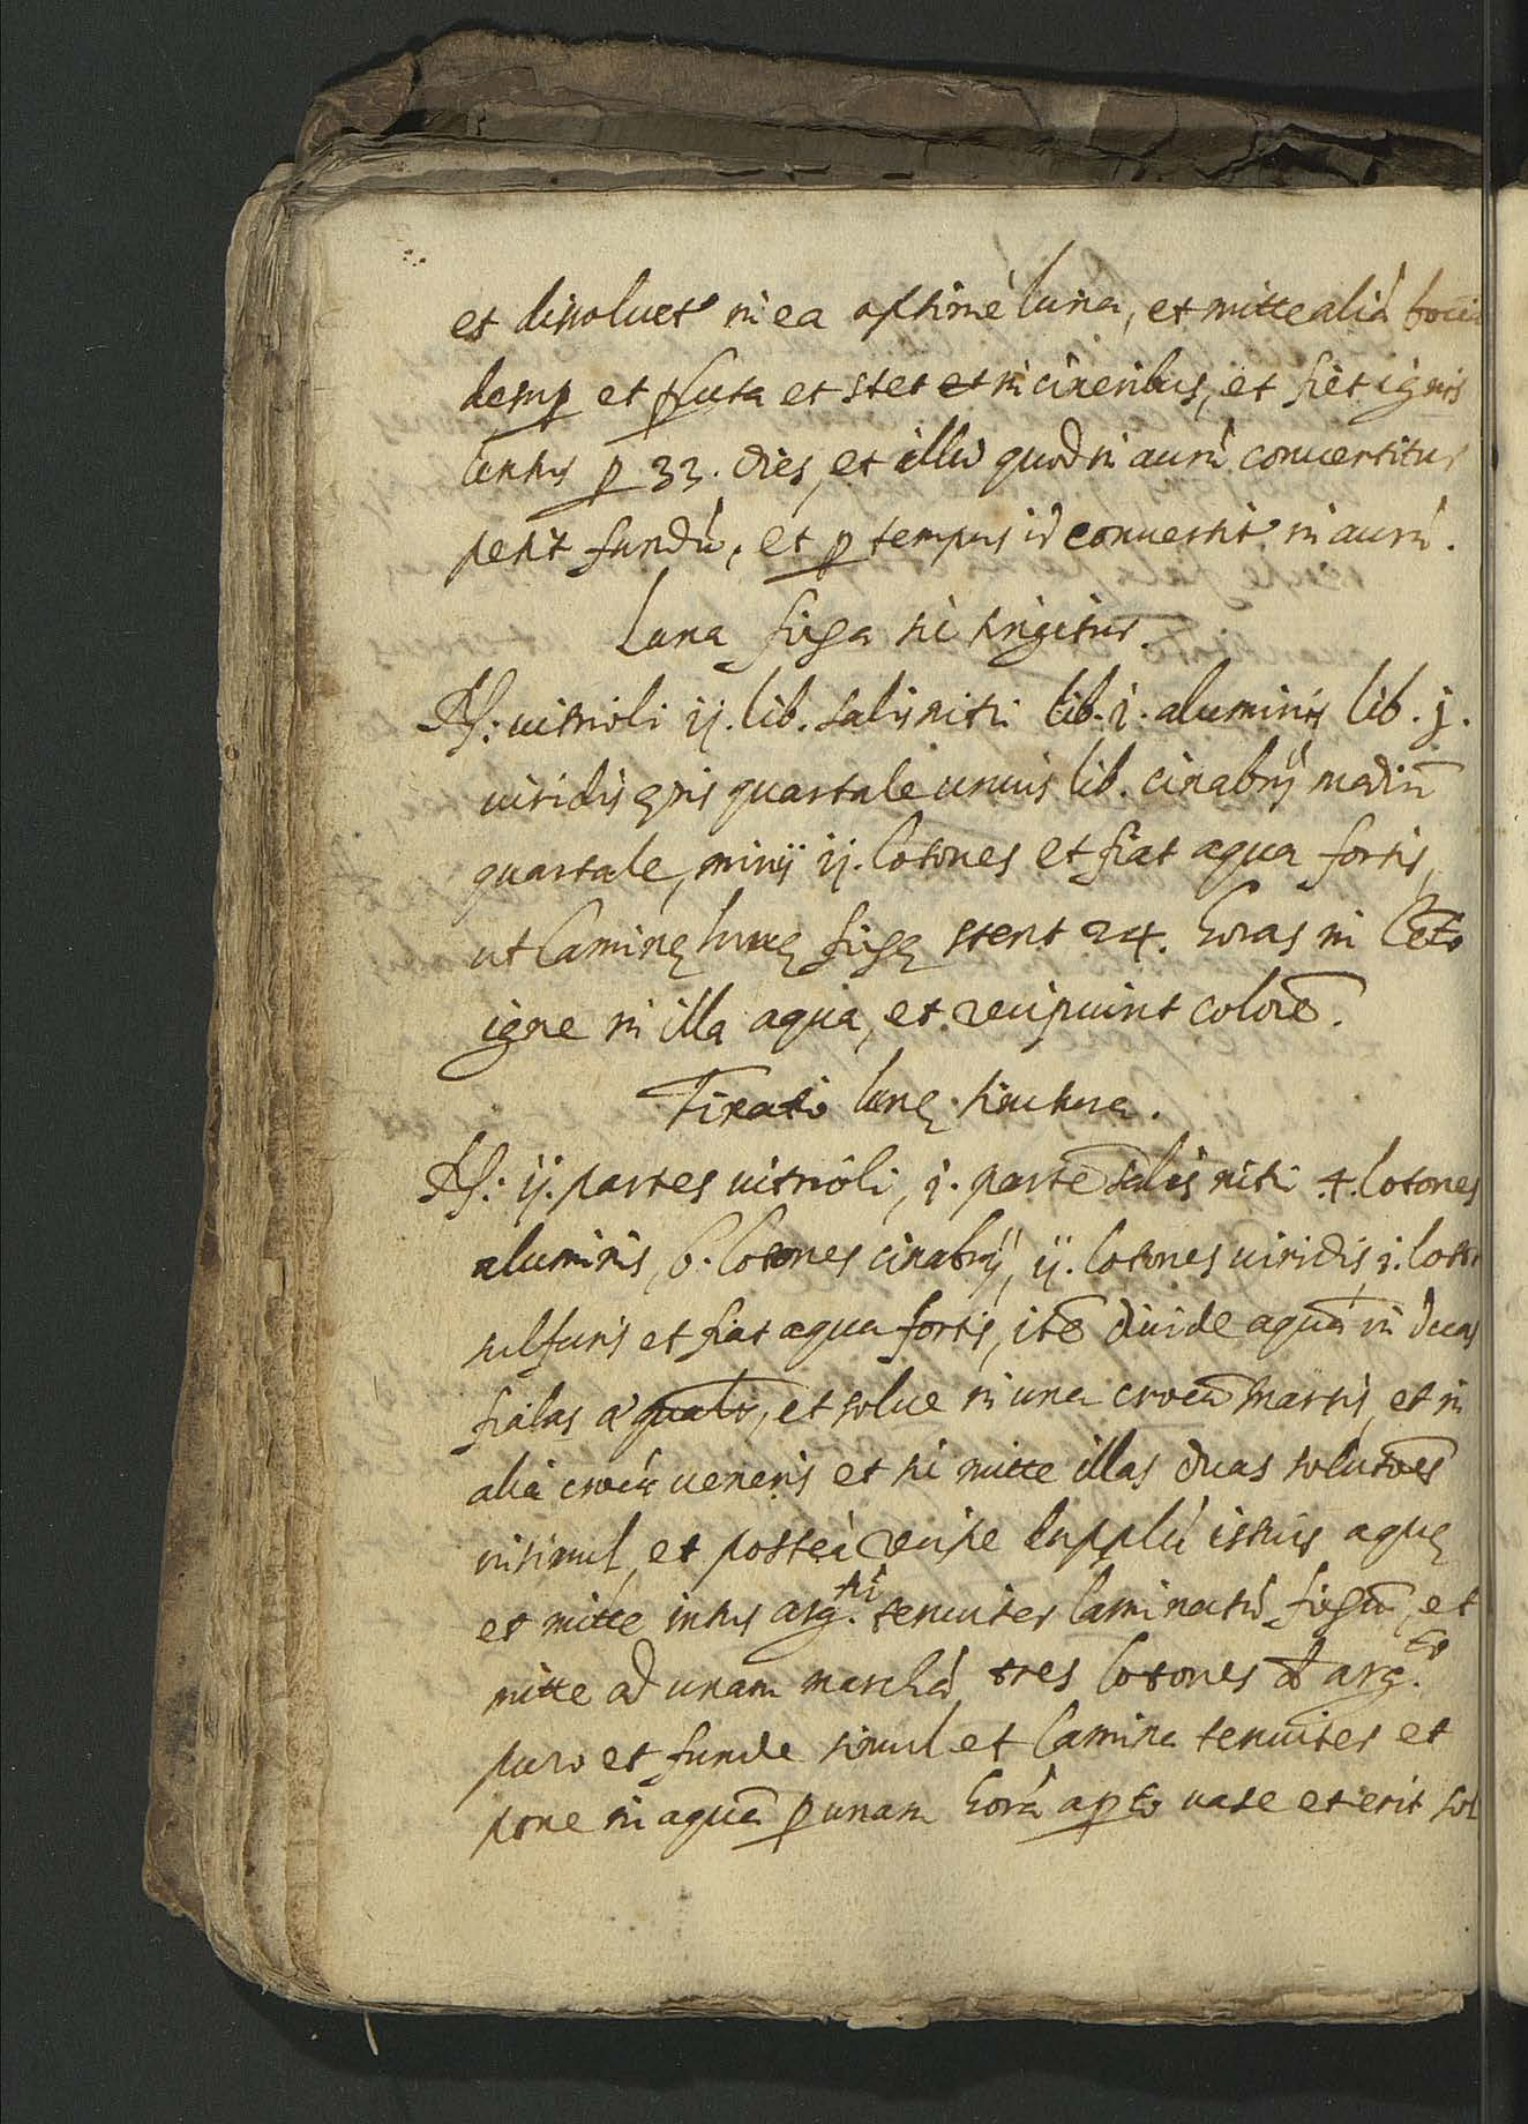 et disoluet' in ea optimè luna, et mitte aliâ
desup et ꝑluta et stet et in cineribus, et fiet ignis
lentus ꝑ 33. dies, et illud quod in aurû conuertitur
petit fundû, et ꝑ tempus id conuertit' in aurû.
Luna fixa sic tingitur.
Rc: uitrioli ij. lib. salis nitri lib. i. aluminis lib. j.
uiridis ęris quartale unius lib. cinabrij
quartale, minij ij. lotones et fiat aqua fortis,
ut laminę lunę fixę stent 24. horas in lẽto
igne in illa aqua, et recipiunt colorẽ.
Fixatio lunę tinctura.
Rc: ij. partes uitrioli, j. partẽ salis nitri 4. lotones
aluminis, 6. lotones cinabrij, ij. lotones uiridis, j. loto
sulfuris et fiat aqua fortis, itẽ diuide aquã in duas
fialas ęquali, et solue in una crocũ martis, et in
aliâ crocû ueneris et sic mitte illas duas solutões
insimul, et posteà recipe duplû istius aquę
et mitte intus arg.ti tenuiter laminatû fixũ, et
mitte ad unam marchâ tres lotones d arg.to
puro et funde simul et lamina tenuiter et
pone in aquã ꝑ unam horâ apto uase et erit sol